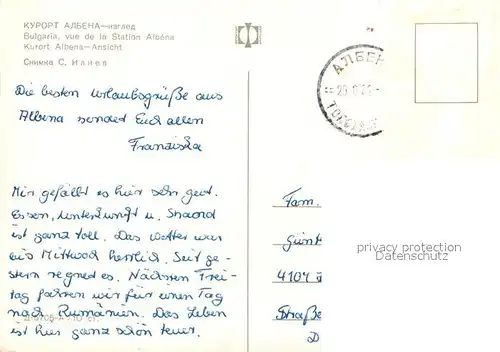 КУРОРТ АЛБЕНА—изглед
Bulgaria, vue de la Station Albéna
Kurort Albena—Ansicht
Снимка С. Илиев
Die besten Urlaubsgrüße aus
Albena sendet Euch allen
Franziska
Mir gefällt es hier sehr gut.
Essen, Unterkunft u. Strand
ist ganz toll. Das Wetter war
bis Mittwoch herrlich. Seit ge-
stern regnet es. Nächsten Frei-
tag fahren wir für einen Tag
nach Rumänien. Das Leben
ist hier ganz schön teuer.
АЛБЕН
Fam.
Günt
4104
Straße
D
privacy protection
Datenschutz